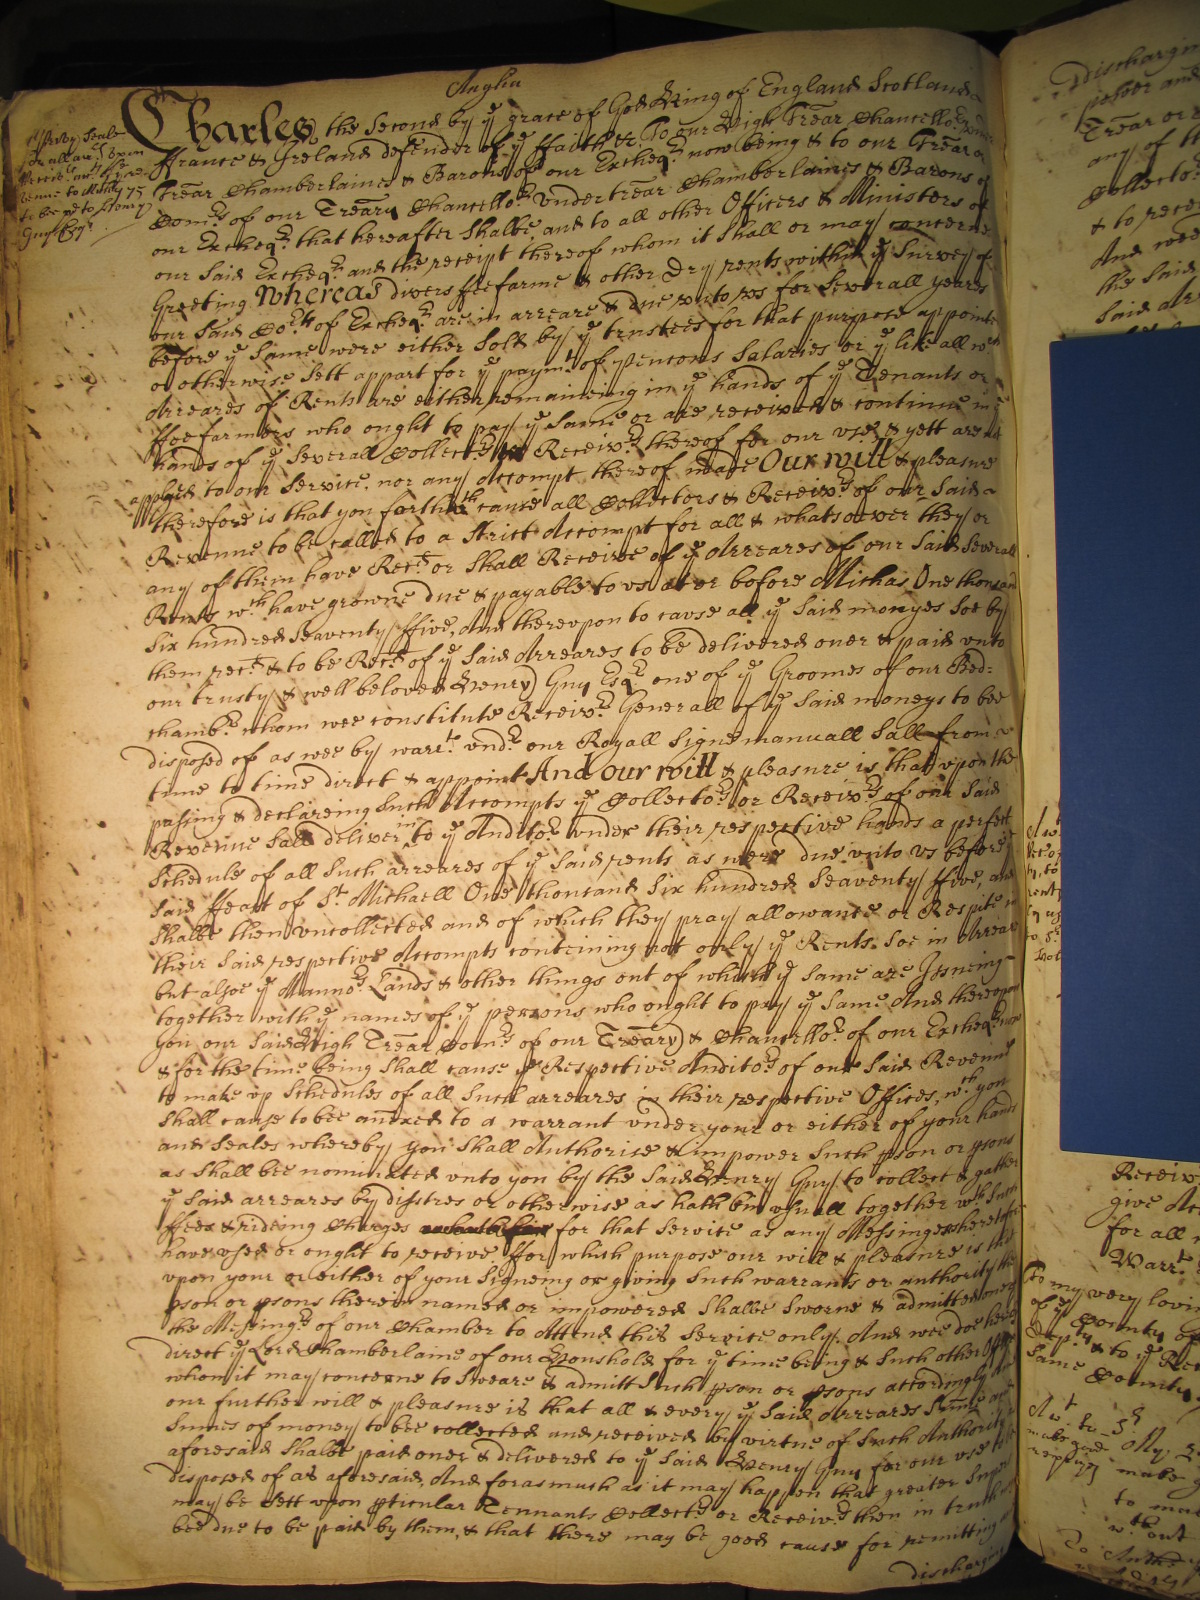 Anglia
A Privy Seale
for all arr.s
to be p.d to Henry
Guy Esq.r
Charles the Second by y.e grace of God King of England Scotland
ffrance & Ireland defender of y.e ffaith &c. To our High Trẽar Chancello.r
Trẽar Chamberlaines & Barons of our Excheq.r now being & to our Trẽar or
Com.rs of our Trẽary Chancello.r Undertrẽar Chamberlaines & Barons of
our Excheq.r that hereafter Shalbe and to all other Officers & Ministers of
our Said Excheq.r and the receipt thereof whom it Shall or may concerne
Greeting Whereas divers ffeefarme & other Dry rents within y.e Survey of
our Said Co.rt of Excheq.r are in arreare & due vnto vs for Severall years
before y.e Same were either Sold by y.e trustees for that purpose appointed
or otherwise Sett appart for y.e paym.t of Pencons Salaries or y.e like all w.ch
Arreares of Rents are either remaineing in y.e hands of y.e Tenants or
ffeefarmers who ought to pay y.e Same or are received & continue in y.e
hands of y.e Severall Collect.rs or Receiv.rs thereof for our vse, & yett are not
applyed to our Service, nor any Accompt thereof made Our will & pleasure
therefore is that you forthw.th cause all Collectors & Receiv.rs of our Said
Revenue to be called to a Strict Accompt for all & whatsoever they or
any of them have Rec.d or Shall Receive of y.e Arreares of our Said Severall
Rents w.ch have growne due & payable to vs at or before Michas One thousand
Six hundred Seaventy ffive, And therevpon to cause all y.e Said monyes Soe by
them rec.d & to be Rec.d of y.e Said Arreares to be delivered over & paid vnto
our trusty & well beloved Henry Guy Esq.r one of y.e Groomes of our Bed=
chamb.r whom wee constitute Receiv.r Generall of y.e Said moneys to bee
disposed of as wee by warr.t und.r our Royall Signe manuall Sall from
time to time direct & appoint And our will & pleasure is that vpon the
passing & declareing Such Accompts y.e Collecto.rs or Receiv.rs of our Said
Revenue Sall deliver in to y.e Audito.rs vnder their respective hands a perfect
Schedule of all Such arreares of y.e Said rents as were due vnto vs before y.e
Said ffeast of S.t Michaell One thousand Six hundred Seaventy ffive, and
Shalbe then vncollected and of which they pray allowance or Respite in
their Said respective Accompts conteining not only y.e Rents Soe in Arreare
but alsoe y.e Manno.rs Lands & other things out of which y.e Same are Issueing
together with y.e names of y.e persons who ought to pay y.e Same And therevpon
you our Said High Trẽar Com.rs of our Trẽary & Chancello.r of our Excheq.r now
& for the time being Shall cause y.e Respective Audito.rs of our Said Revenue
to make vp Schedules of all Such arreares in their respective Offices, w.ch you
Shall cause to bee an̄exed to a warrant vnder your or either of your hands
and Seales whereby you Shall Authorise & impower Such pson or psons
as Shall bee nominated vnto you by the Said Henry Guy to collect & gather
y.e Said arreares by distres or otherwise as hath bin vsuall together with Such
ffees & rideing Charges for that Service as any Messingers heretofore
have vsed or ought to receive ffor which purpose our will & pleasure is that
vpon your or either of your Signeing or giving Such warrants or authority the
pson or psons therein named or impowered Shalbe Sworne & admitted one of
the Messing.rs of our Chamber to Attend this Service only, And wee doe hereby
direct y.e Lord Chamberlaine of our Houshold for y.e time being & Such other
whom it may concerne to Sweare & admitt Such pson or psons accordingly And
our further will & pleasure is that all & every y.e Said Arreares Sume and
Sumes of money to bee collected and received by virtue of Such Authority as
aforesaid Shalbe paid over & delivered to y.e Said Henry Guy for our vse to be
disposed of as aforesaid, And forasmuch as it may happen that greater
may be Sett vpon pticular Tennants Collect.rs or Receiv.rs then in truth
bee due to be paid by them, & that there may be good cause for remitting
discharging
Trẽar or
any of th
Collecto.rs
& to rece
And wee
the Said
Said Ar
give
for all
Warr.t
To my very lovin
of y.e County of
Same County